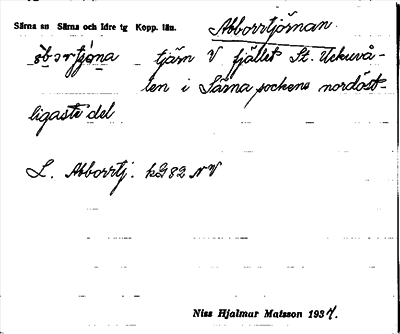 Särna sn Särna och Idre tg Kopp. län.
Abborrtjärnan.
tjärn V fjället St. Uckuvå-
len i Särna sockens nordöst-
ligaste del
L. Abborrtj. kG82 NV
Niss Hjalmar Matsson 1937.